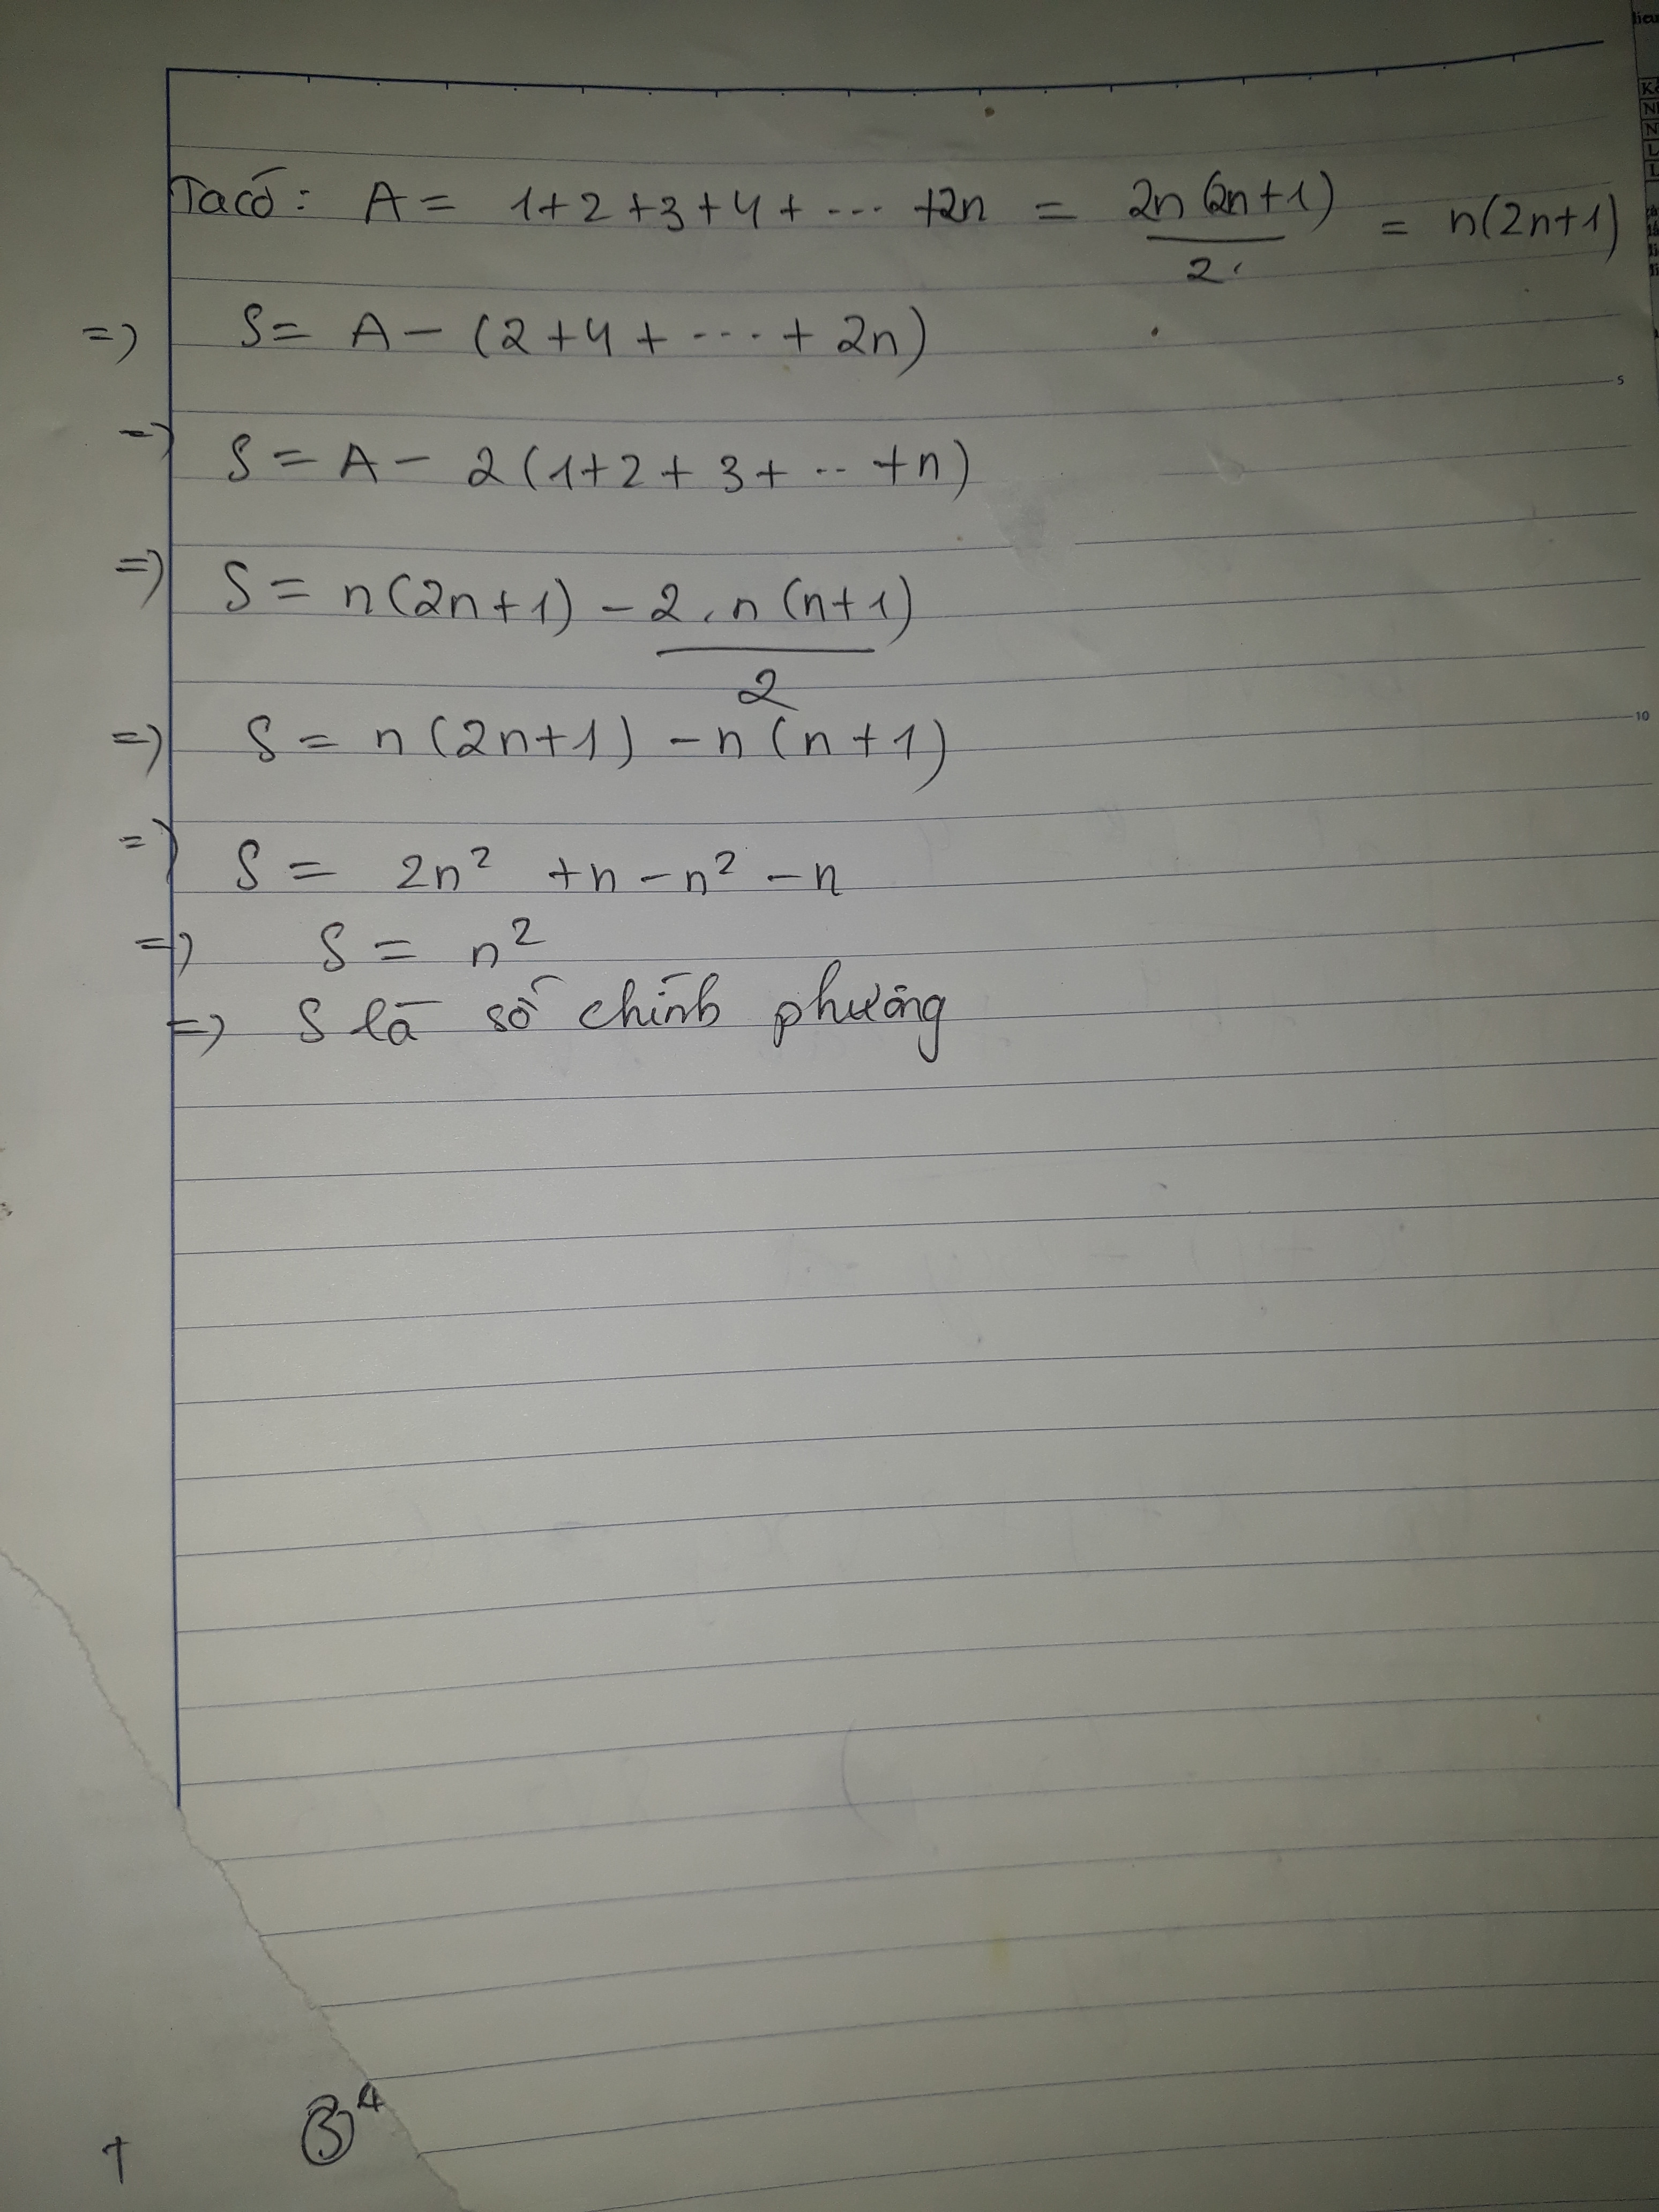 Ta có: A = 1+2+3+4+ ... +2n = 2n(2n+1)/2 = n(2n+1)
=> S = A - (2+4+ .... + 2n)
=> S = A - 2(1+2+3+ ... +n)
=> S = n(2n+1) - 2.n(n+1)/2
=> S = n(2n+1) - n(n+1)
=> S = 2n² +n - n² - n
=> S = n²
=> S là số chính phương
5
10